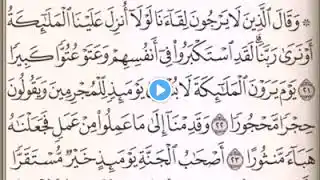 ۞ وَقَالَ ٱلَّذِينَ لَا يَرْجُونَ لِقَآءَنَا لَوْلَآ أُنزِلَ عَلَيْنَا ٱلْمَلَٰٓئِكَةُ
أَوْ نَرَىٰ رَبَّنَا ۗ لَقَدِ ٱسْتَكْبَرُوا۟ فِىٓ أَنفُسِهِمْ وَعَتَوْ عُتُوًّا كَبِيرًا
٢١ يَوْمَ يَرَوْنَ ٱلْمَلَٰٓئِكَةَ لَا يَوْمَئِذٍ لِّلْمُجْرِمِينَ وَيَقُولُونَ
حِجْرًا مَّحْجُورًا ٢٢ وَقَدِمْنَآ إِلَىٰ مَا عَمِلُوا۟ مِنْ عَمَلٍ فَجَعَلْنَٰهُ
هَبَآءً مَّنثُورًا ٢٣ أَصْحَٰبُ ٱلْجَنَّةِ يَوْمَئِذٍ خَيْرٌ مُّسْتَقَرًّا